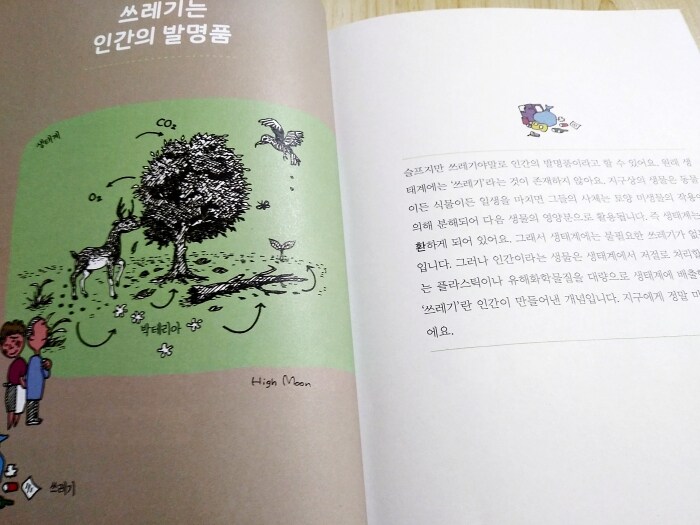 쓰레기는
인간의 발명품
생태계
CO₂
O₂
박테리아
High Moon
쓰레기
슬프지만 쓰레기야말로 인간의 발명품이라고 할 수 있어요. 원래 생
태계에는 '쓰레기'라는 것이 존재하지 않아요. 지구상의 생물은 동물
이든 식물이든 일생을 마치면 그들의 사체는 토양 미생물의 작용에
의해 분해되어 다음 생물의 영양분으로 활용됩니다. 즉 생태계는
환하게 되어 있어요. 그래서 생태계에는 불필요한 쓰레기가 없
입니다. 그러나 인간이라는 생물은 생태계에서 저절로 처리할
는 플라스틱이나 유해화학물질을 대량으로 생태계에 배출
'쓰레기'란 인간이 만들어낸 개념입니다. 지구에게 정말 미
에요.